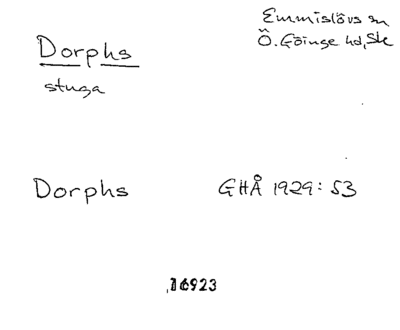 Emmislövs sn
Ö. Göinge hd, Sk
Dorphs
stuga
Dorphs GHÅ 1929: 53
16923